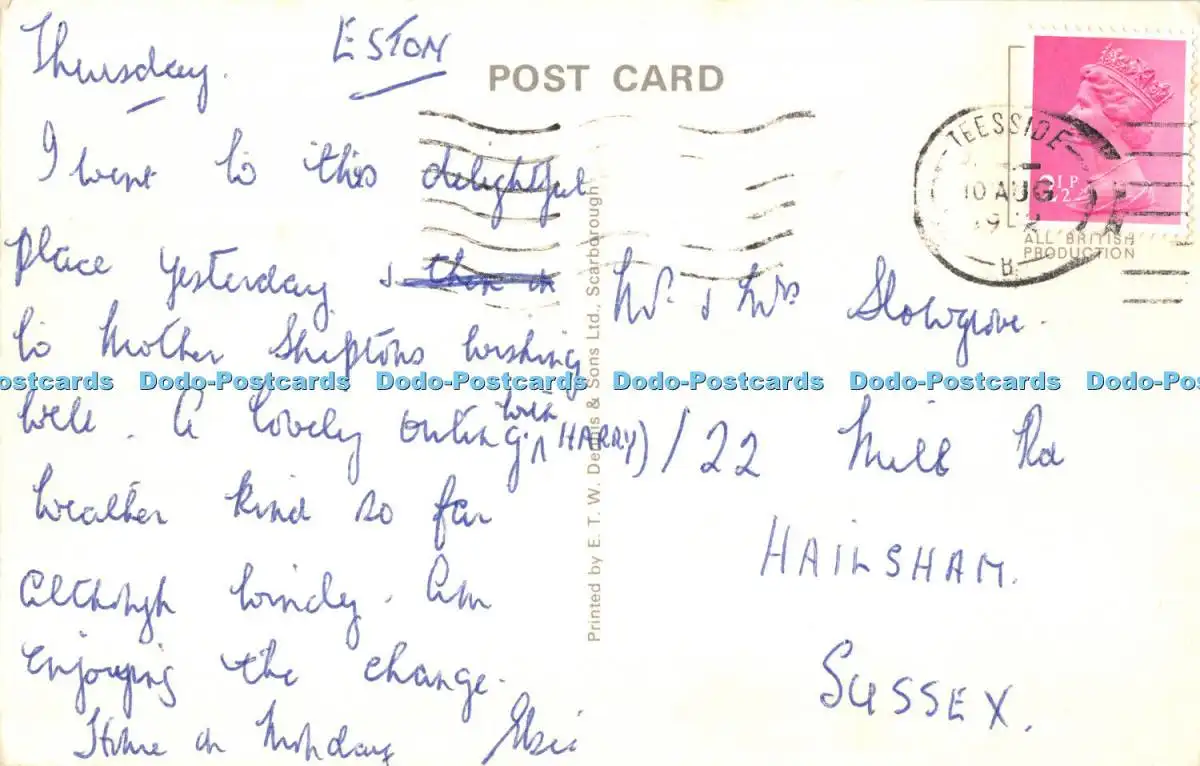 Thursday. ESTON
POST CARD
I went to this delightful
place yesterday &
to Mother Shiptons wishing
well. A lovely outing. (with HARRY)
Weather kind so far
although windy. Am
enjoying the change.
Home on Monday Elsie
Mr. & Mrs Slowgrove.
122 Mill Rd
HAILSHAM.
SUSSEX.
Printed by E. T. W. Dennis & Sons Ltd., Scarborough
TEESSIDE
10 AUG
B
2½P
ALL BRITISH
PRODUCTION
Dodo-Postcards Dodo-Postcards Dodo-Postcards Dodo-Postcards Dodo-Postcards